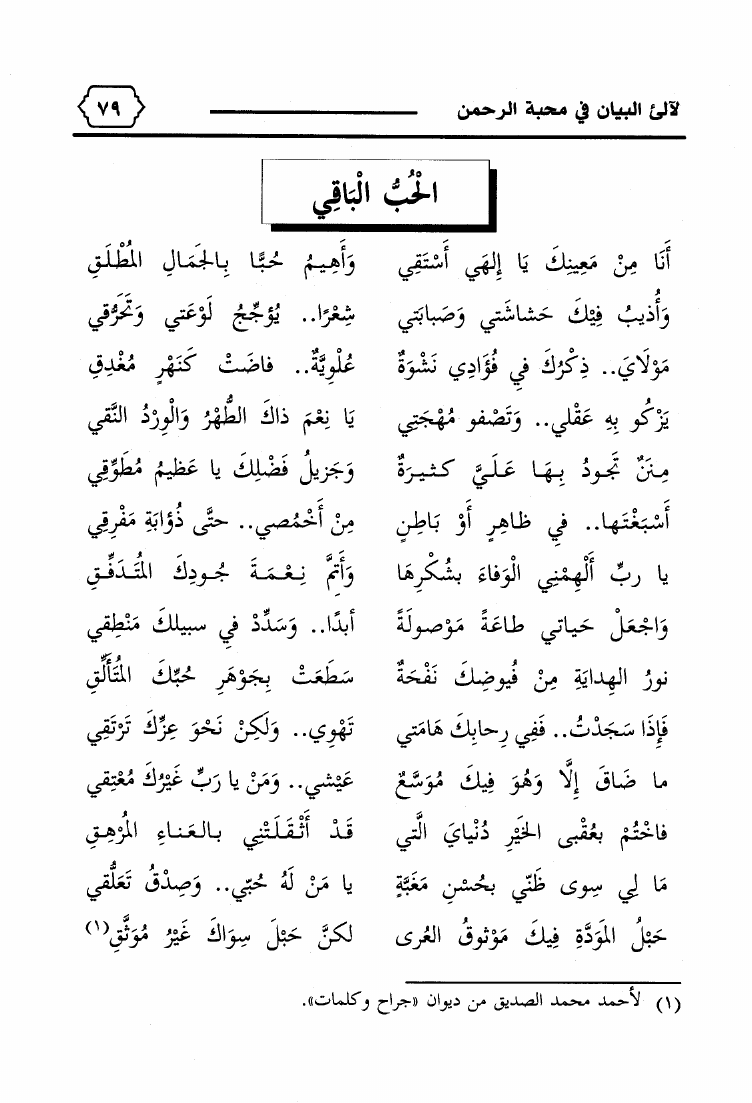 لآلئ البيان في محبة الرحمن ٧٩
الْحُبُّ الْبَاقِي
أَنَا مِنْ مَعِينِكَ يَا إِلهَي أَسْتَقِي وَأَهِيمُ حُبًّا بِالجَمَالِ المُطْلَقِ
وَأُذيبُ فِيْكَ حَشاشَتي وَصَبابَتي شِعْرًا.. يُؤجِّجُ لَوْعَتي وَتَحَرُّقي
مَوْلَايَ.. ذِكْرُكَ في فُؤَادِي نَشْوَةٌ عُلْوِيَّةٌ.. فاضَتْ كَنَهْرٍ مُغْدِقِ
يَزْكُو بِهِ عَقْلي.. وَتَصْفو مُهْجَتِي يَا نِعْمَ ذاكَ الطُّهْرُ وَالْوِرْدُ النَّقي
مِنَنٌ تَجودُ بِهَا عَلَيَّ كثيرَةٌ وَجَزيلُ فَضْلِكَ يا عَظيمُ مُطَوِّقِي
أَسْبَغْتَها.. في ظاهِرٍ أَوْ بَاطِنٍ مِنْ أَخْمُصي.. حتَّى ذُؤابَةِ مَفْرِقِي
يا ربِّ أَلْهِمْنِي الْوَفاءَ بشُكْرِهَا وَأَتِمَّ نِعْمَةَ جُودِكَ المُتَدَفِّقِ
وَاجْعَلْ حَياتي طاعَةً مَوْصولَةً أبدًا.. وَسَدِّدْ في سبيلكَ مَنْطِقي
نورُ الهِدايَةِ مِنْ فُيوضِكَ نَفْحَةٌ سَطَعَتْ بِجَوْهَرِ حُبِّكَ المُتَأَلِّقِ
فَإِذَا سَجَدْتُ.. فَفِي رِحابِكَ هَامَتي تَهْوِي.. وَلَكِنْ نَحْوَ عِزِّكَ تَرْتَقِي
ما ضَاقَ إِلَّا وَهُوَ فِيكَ مُوَسَّعٌ عَيْشي.. وَمَنْ يا رَبِّ غَيْرُكَ مُعْتِقي
فَاخْتُمْ بعُقْبى الخَيْرِ دُنْيايَ الَّتي قَدْ أَثْقَلَتْنِي بالعَناءِ المُرْهِقِ
مَا لِي سِوى ظَنّي بحُسْنِ مَغَبَّةٍ يا مَنْ لَهُ حُبّي.. وَصِدْقُ تَعَلُّقي
حَبْلُ المَوَدَّةِ فِيكَ مَوْثوقُ العُرى لكنَّ حَبْلَ سِوَاكَ غَيْرُ مُوَثَّقِ(١)
(١) لأحمد محمد الصديق من ديوان «جراح وكلمات».